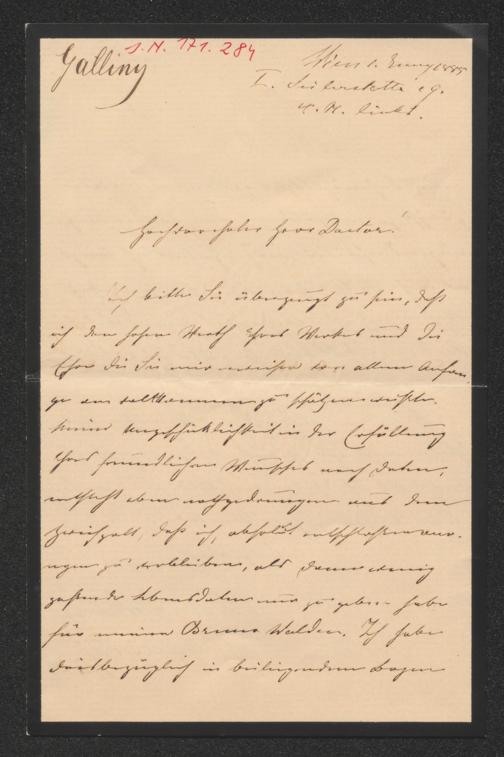 Galliny
J.N. 171.284
Wien 1. 1885
I. Seilerstätte 
links.
Hochverehrter Herr Doctor!
Ich bitte Sie überzeugt zu sein, daß
ich den hohen Werth Ihres Werkes und die
Ehre die Sie mir erweisen von allem Anfan-
ge an vollkommen zu schätzen wußte.
Meine Ungeschicklichkeit in der Erfüllung
Ihres freundlichen Wunsches nach Daten,
entsteht eben nothgedrungen aus dem
Zwiespalt, daß ich, absolut entschlossen ano-
nym zu verbleiben, als dann wenig
passende Lebensdaten nur zu geben habe
für meinen Bruno Walden. Ich habe
diesbezüglich in beiliegendem Bogen